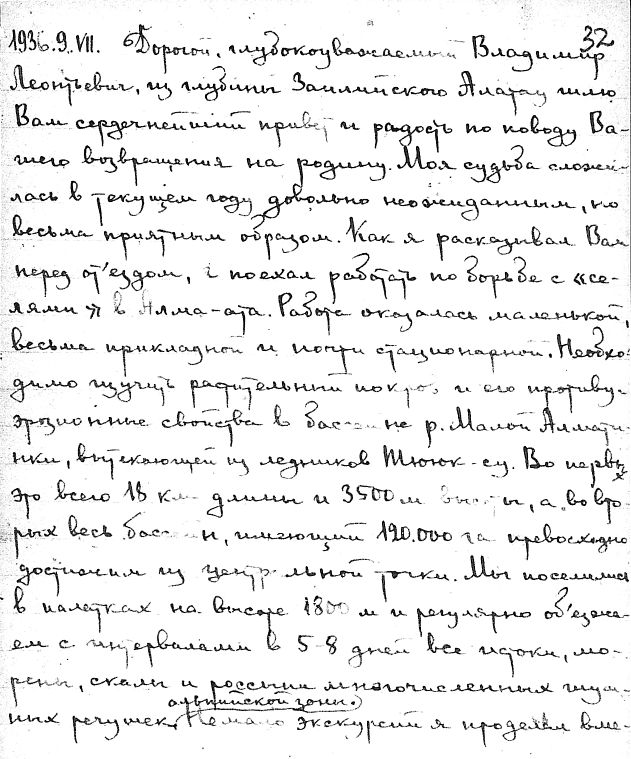 32
1936.9.VII. Дорогой, глубокоуважаемый Владимир
Леонтьевич, из глубины Заилийского Алатау шлю
Вам сердечнейший привет и радость по поводу Ва-
шего возвращения на родину. Моя судьба сложи-
лась в текущем году довольно неожиданным, но
весьма приятным образом. Как я расказывал Вам
перед от'ездом, я поехал работать по борьбе с «се-
лями» в Алма-ата. Работа оказалась маленькой,
весьма прикладной и почти стационарной. Необхо-
димо изучить растительный покров и его противу-
эрозионные свойства в бассейне р. Малой Алмати-
нки, вытекающей из ледников Тююк-су. Во первых
это всего 18 км длины и 3500 м высоты, а во вто-
рых весь бассейн, имеющий 120.000 га превосходно
достижим из центральной точки. Мы поселились
в палатках на высоте 1800 м и регулярно об'езжа-
ем с интервалами в 5-8 дней все истоки, мо-
рены, скалы и россыпи многочисленных шум-
ных речушек альпийской зоны. Немало экскурсий я проделал вме-